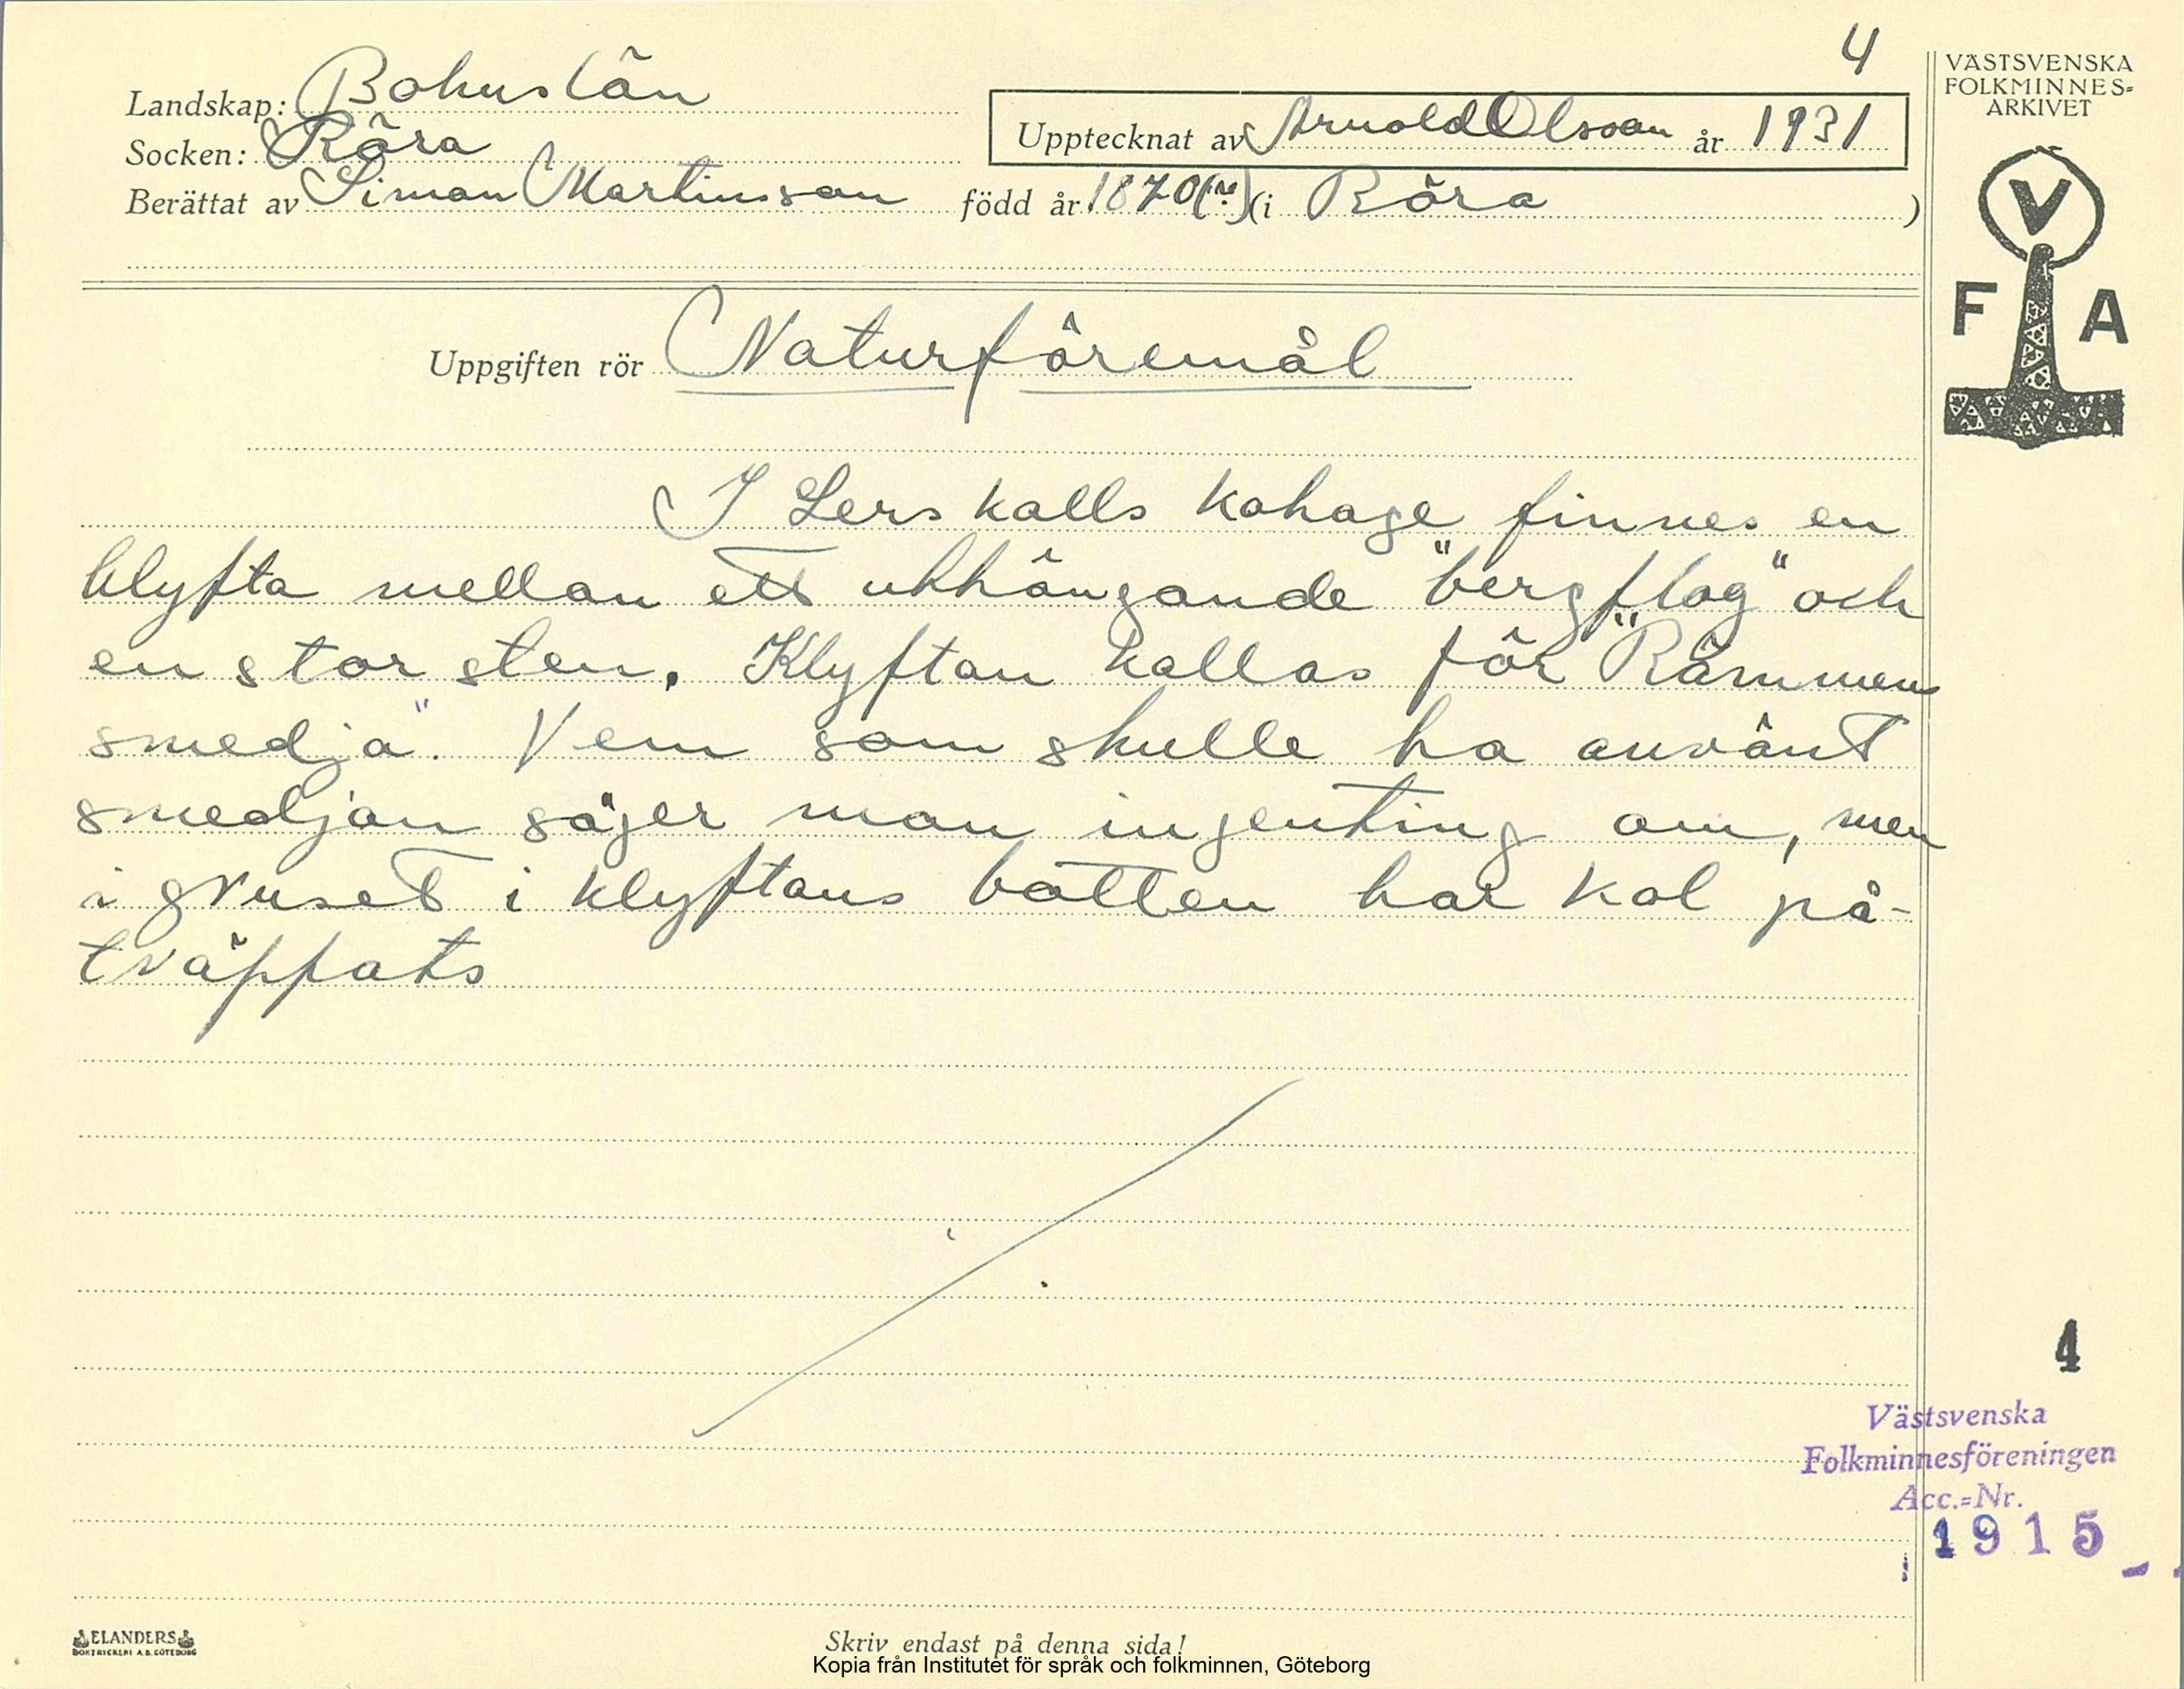 4
VÄSTSVENSKA
FOLKMINNES=
ARKIVET
Landskap: Bohuslän
Socken: Röra
Upptecknat av Arnold Olsson år 1931
Berättat av Simon Martinsson född år 1870 (i Röra )
V
F A
Uppgiften rör Naturföremål
I Lerskalls kohage finnes en
klyfta mellan ett uhhängande "bergflog" och
en stor sten. Klyftan kallas för "Rämmens
smedja". Vem som skulle ha använt
smedjan säger man ingenting om, men
i gruset i klyftans botten har kol på-
träppats
4
Västsvenska
Folkminnesföreningen
Acc.=Nr.
1915
ELANDERS
BOKTRYCKERI A.B. GÖTEBORG
Skriv endast på denna sida!
Kopia från Institutet för språk och folkminnen, Göteborg